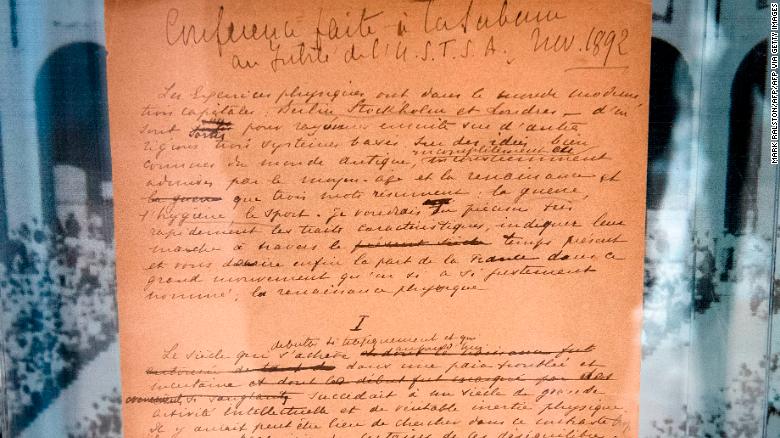 Conference faite à la Sorbonne
au Jubilé de l'U.S.F.S.A. Nov. 1892
Les Exercices physiques ont dans le monde moderne
trois capitales : Berlin Stockholm et Londres — d'où
sont pour rayonner ensuite sur d'autres
régions trois systèmes basés sur des idées bien
connues du monde antique, incomplètement
admises par le moyen-age et la renaissance et
que trois mots résument : la guerre,
l'hygiène, le sport. Je voudrais en préciser très
rapidement les traits caractéristiques, indiquer leur
marche à travers le present siècle temps présent
et vous dire enfin la part de la France dans ce
grand mouvement qu'on a si justement
nommé ; la renaissance physique
I
débutta si tragiquement et qui
Le siècle qui s'achève
dans une paix troublée et
incertaine et dont le début fut marqué par des
si sanglants succedait à un siècle de grande
activité intellectuelle et de veritable inertie physique.
Il y aurait peut être lieu de chercher dans ce contraste
MARK RALSTON/AFP/AFP VIA GETTY IMAGES